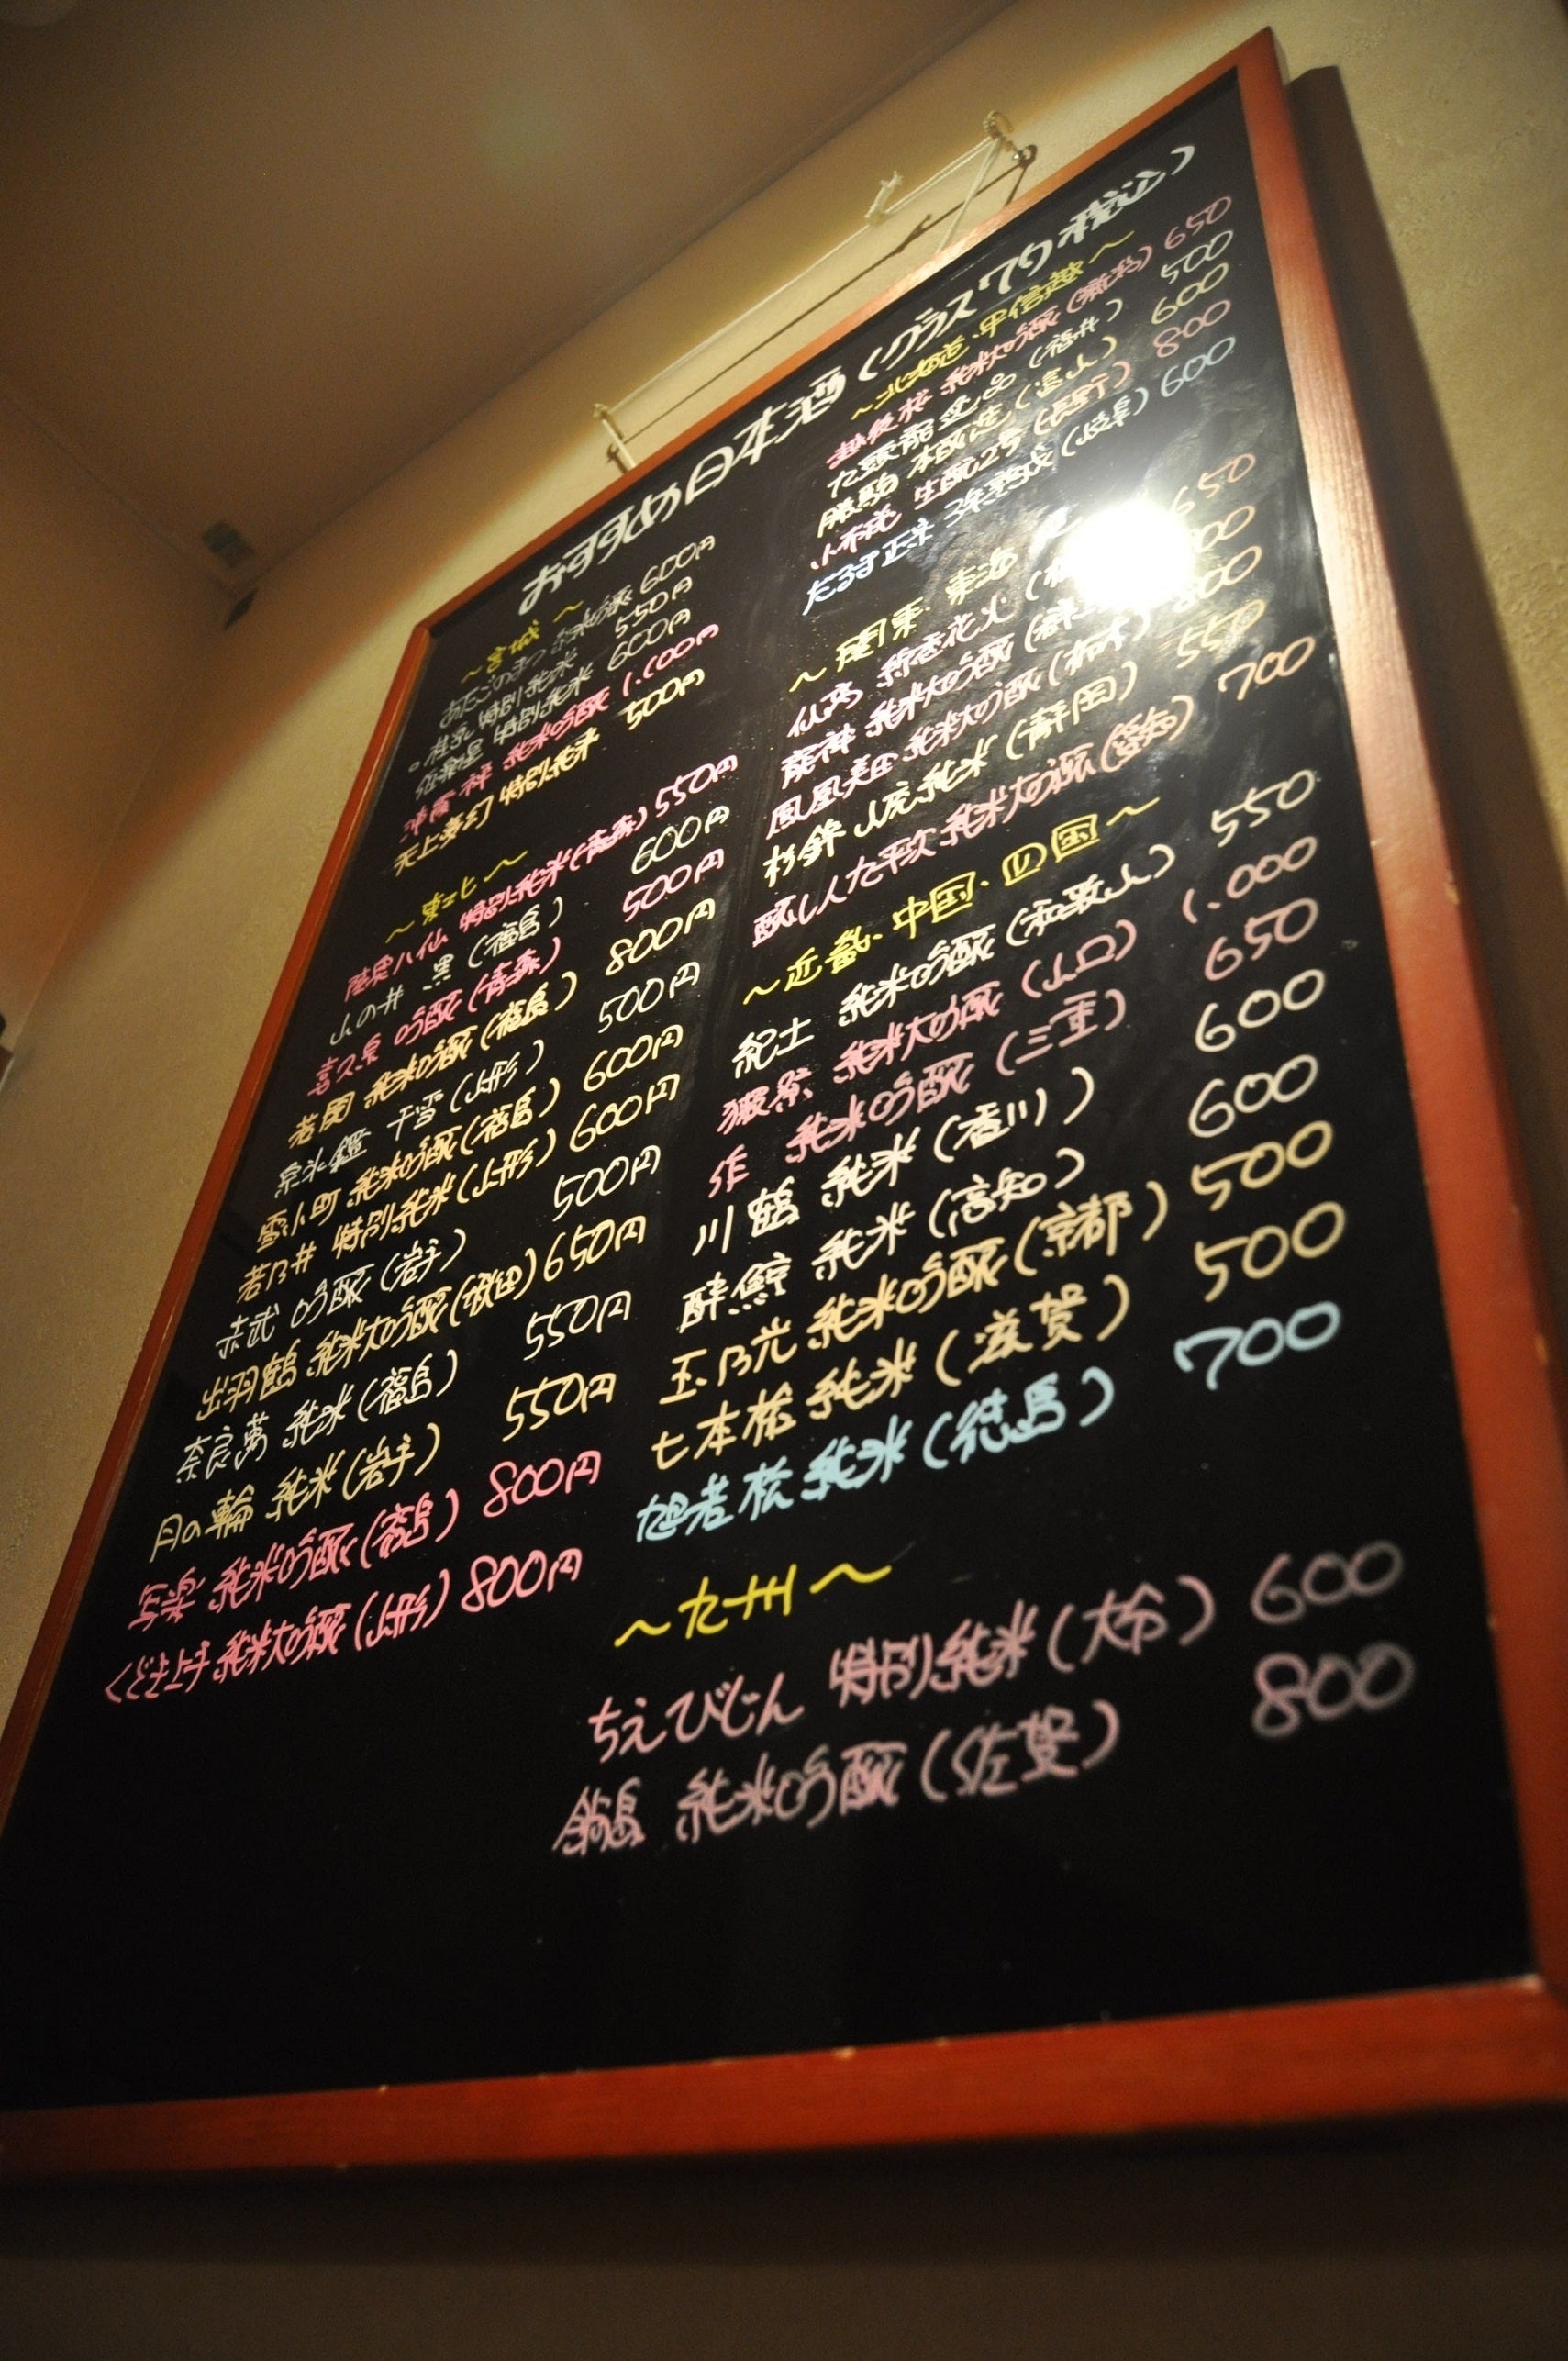 おすすめ日本酒(グラス7勺税込)
～宮城～
あたごのまつ 純米吟醸 600円
特別純米 550円
伯楽星 特別純米 600円
純米吟醸 1.100円
天上夢幻 特別純米 500円
～東北～
陸奥八仙 特別純米(青森) 550円
山の井 黒(福島) 600円
喜久泉 吟醸(青森) 500円
若関 純米吟醸(福島) 800円
氷鑑 千雪(山形) 500円
雪小町 純米吟醸(福島) 600円
若乃井 特別純米(山形) 600円
赤武 吟醸(岩手) 500円
出羽鶴 純米大吟醸(秋田) 650円
奈良萬 純米(福島) 550円
月の輪 純米(岩手) 550円
写楽 純米吟醸(福島) 800円
くどき上手 純米大吟醸(山形) 800円
～北海道・甲信越～
越後桜 純米大吟醸(新潟) 650
九頭龍 逸品(福井) 500
勝駒 本醸造(富山) 600
小布施 生酛2号(長野) 800
だるま正宗 3年熟成(岐阜) 600
～関東・東海
仙禽 線香花火 650
龍神 純米大吟醸
鳳凰美田 純米大吟醸(栃木) 800
杉錦 山廃純米(静岡) 550
醸し人九平次 純米大吟醸(愛知) 700
～近畿・中国・四国～
紀土 純米吟醸(和歌山) 550
獺祭 純米大吟醸(山口) 1.000
作 純米吟醸(三重) 650
川鶴 純米(香川) 600
酔鯨 純米(高知) 600
玉乃光 純米吟醸(京都) 500
七本槍 純米(滋賀) 500
旭若松 純米(徳島) 700
～九州～
ちえびじん 特別純米(大分) 600
鍋島 純米吟醸(佐賀) 800